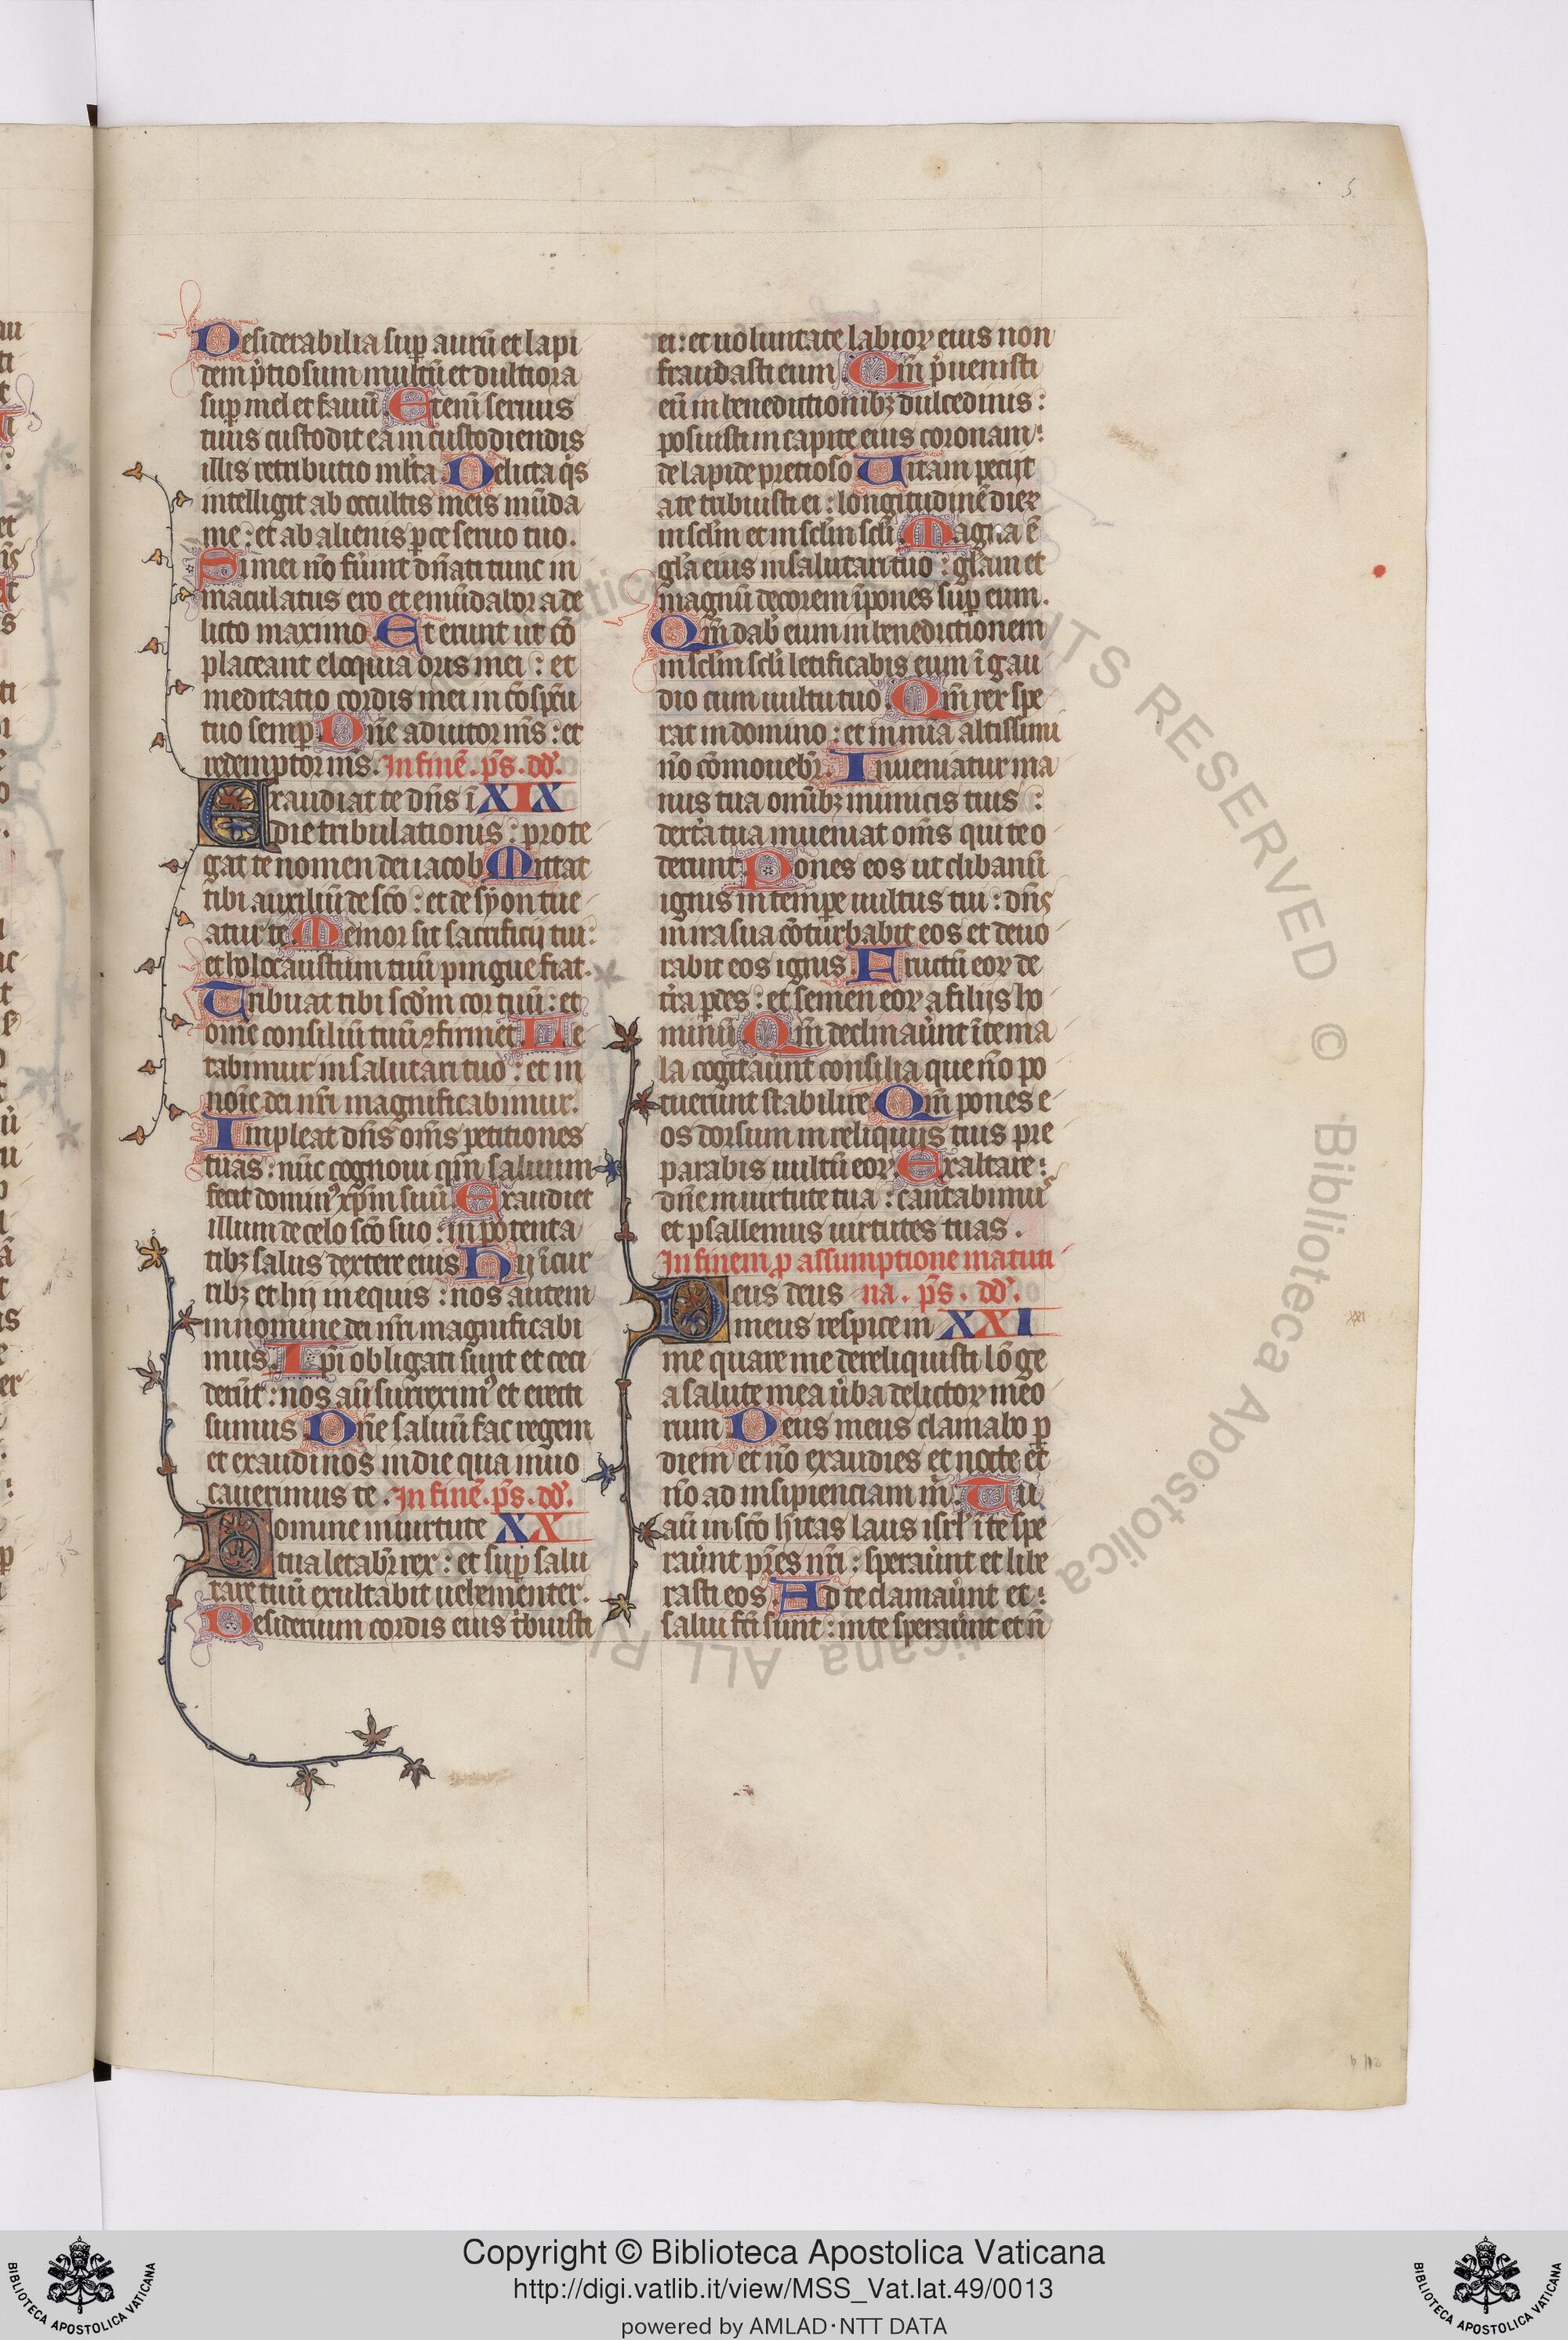 5
Desiderabilia sup̄ aurū et lapi
dem p̄tiosum multū et dulciora
sup̄ mel et fauū Etenī seruus
tuus custodit ea in custodiendis
illis retributio ml̄ta Delicta q̄s
intelligit ab occultis meis mūda
me : et ab alienis p̄ce seruo tuo.
Si mei nō fūint dn̄ati tunc in
maculatus ero et emūdabor a de
licto maximo Et erunt ut cō
placeant eloquia oris mei : et
meditatio cordis mei in cōspc̄u
tuo semp̄ Dn̄e adiutor ms̄ : et
redemptor ms̄. In finē. ps̄. dd̄.
Exaudiat te dn̄s ī XIX
die tribulationis : prote
gat te nomen dei iacob Mittat
tibi auxiliū de sc̄o : et de syon tue
atur te Memor sit sacrificij tui :
et holocaustum tuū pingue fiat.
Tribuat tibi scd̄m cor tuū : et
om̄e consiliū tuū ꝯfirmet Le
tabimur in salutari tuo : et in
noīe dei nr̄i magnificabimur.
Impleat dn̄s om̄s petitiones
tuas : nūc cognoui qm̄ saluum
fecit dominꝰ xp̄m suū Exaudiet
illum de celo sc̄o suo : in potenta
tibꝫ salus dextere eius Hij ī cur
ribꝫ et hij in equis : nos autem
in nomine dei nr̄i magnificabi
mus. Ip̄i obligati sunt et ceci
derūt : nos aū surreximꝰ et erecti
sumus Dn̄e saluū fac regem
et exaudi nos in die qua inuo
cauerimus te. In finē. ps̄. dd̄.
Domine in uirtute XX
tua letabr̄ rex : et sup̄ salu
tare tuū exultabit uehementer.
Desiderium cordis eius t̄buisti
ei : et uoluntate labioꝝ eius non
fraudasti eum Qm̄ p̄uenisti
eū in benedictionibꝫ dulcedinis :
posuisti in capite eius coronam :
de lapide pretioso Uitam petijt
a te tribuisti ei : longitudinē dieꝝ
in sc̄lm et in sc̄lm sc̄li Magna ē
gl̄a eius in salutari tuo : gl̄am et
magnū decorem īpones sup̄ eum.
Qm̄ dab̄ eum in benedictionem
in sc̄lm sc̄li letificabis eum ī gau
dio cum uultu tuo Qm̄ rex spe
rat in domino : et in mīa altissimi
nō cōmouebr̄. Inueniatur ma
nus tua omībꝫ inimicis tuis :
dext̄a tua inueniat om̄s qui te o
derunt Pones eos ut clibanū
ignis in temp̄e uultus tui : dn̄s
in ira sua cōturbabit eos et deuo
rabit eos ignis Fructū eoꝝ de
t̄ra p̄des : et semen eoꝝ a filijs ho
minū Qm̄ declinaūnt ī te ma
la cogitaūnt consilia que nō po
tuerunt stabilire Qm̄ pones e
os dorsum in reliquijs tuis pre
parabis uultū eoꝝ Exaltare :
dn̄e in uirtute tua : cantabimus
et psallemus uirtutes tuas.
In finem p̄ assumptione matuti
Deus deus na. ps̄. dd̄.
meus respice in XXI
me quare me dereliquisti lōge
a salute mea ūba delictoꝝ meo
rum Deus meus clamabo p̄
diem et nō exaudies et nocte et
nō ad insipienciam m̄ Tu
aū in sc̄o hītas laus isrl̄ ī te spe
raūnt pr̄es nr̄i : speraūnt et libe
rasti eos Ad te clamaūnt et :
salui fc̄i sunt : in te speraūnt et n̄
xxi
© Biblioteca Apostolica Vaticana ALL RIGHTS RESERVED
BIBLIOTECA APOSTOLICA VATICANA
Copyright © Biblioteca Apostolica Vaticana
http://digi.vatlib.it/view/MSS_Vat.lat.49/0013
powered by AMLAD·NTT DATA
BIBLIOTECA APOSTOLICA VATICANA